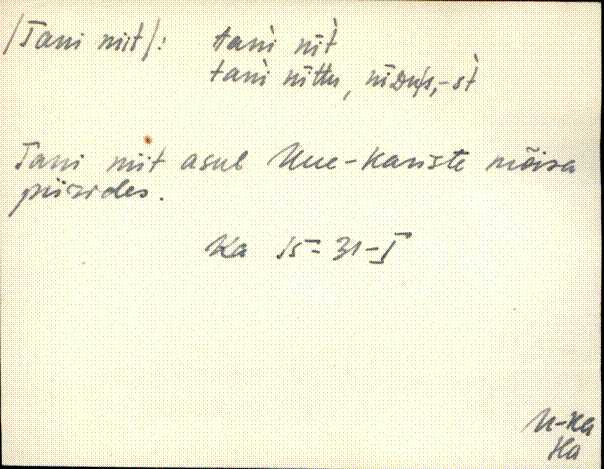 /Tani niit/: tani nīt̀
tani nīttu, nīDus, -st̀
Tani niit asub Uue-Kariste mõisa
piirides.
Ka 15= 31-I
U-Ka
Ha